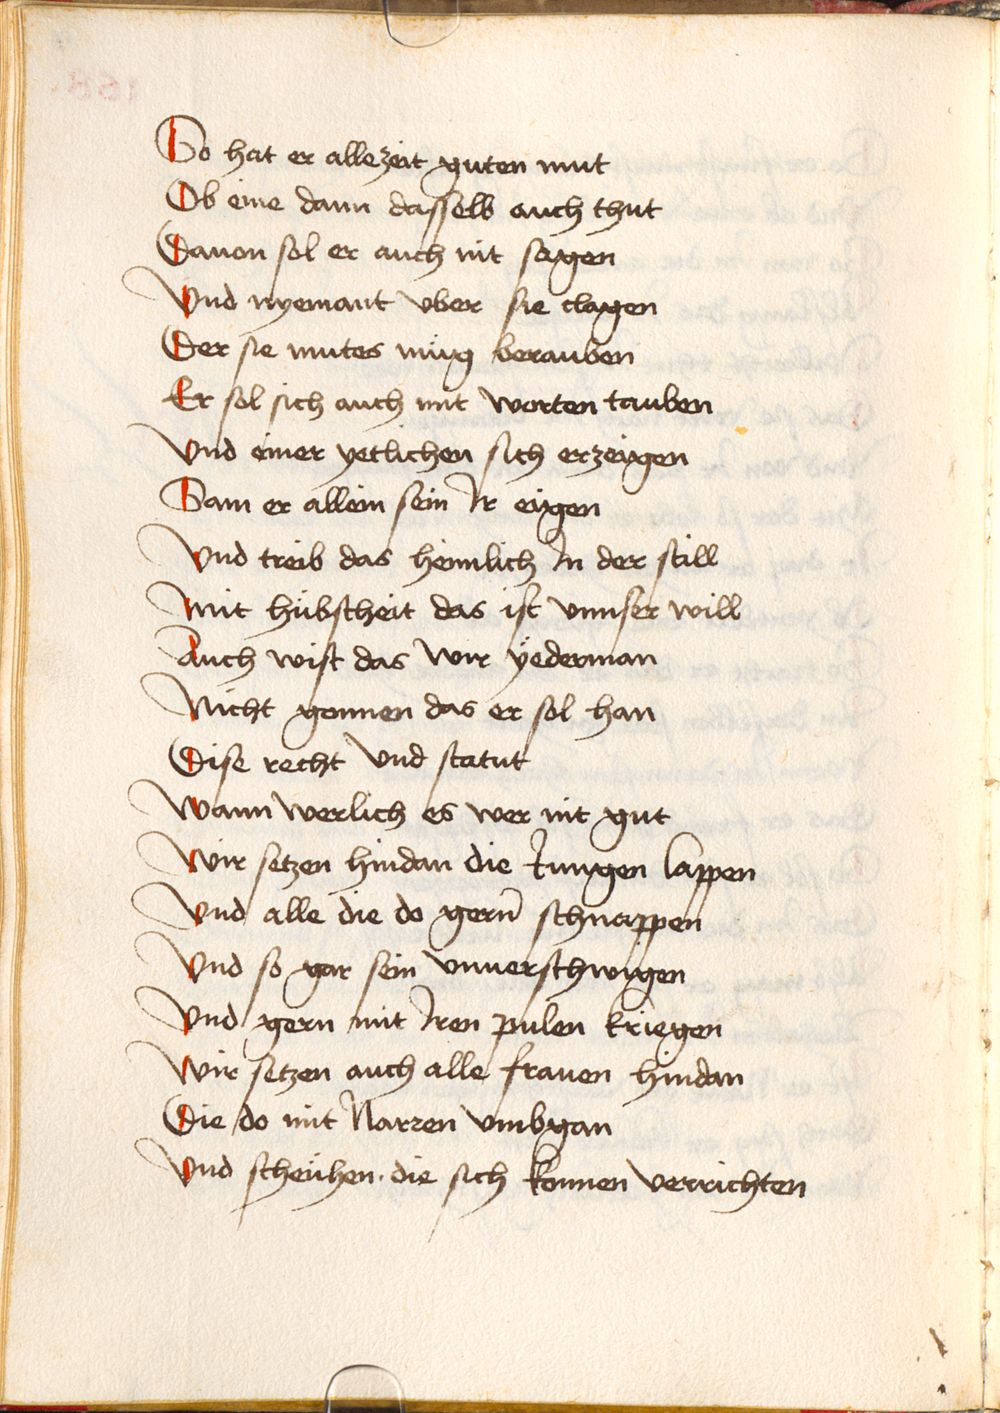 So hat er allezeit guten mut
Ob eine dann dasselb auch thut
Dauon sol er auch nit sagen
Vnd nyemant vber sie clagen
Der sie mutes mùg berauben
Er sol sich auch mit worten tauben
Vnd einer yetlichen sich erzeigen
Sam er allein sein Ir eigen
Vnd treib das heimlich In der still
Mit hùbscheit das ist vnnser will
Auch wist das wir yederman
Nicht gonnen das er sol han
Dise recht vnd statut
Wann werlich es wer nit gut
Wir setzen hindan die Iungen lappen
Vnd alle die do gern schnappen
Vnd so gar sein vnuerschwigen
Vnd gern mit Iren pulen kriegen
Wir setzen auch alle frauen hindan
Die do mit Narren vmbgan
Vnd scheùhen die sich konnen verrichten